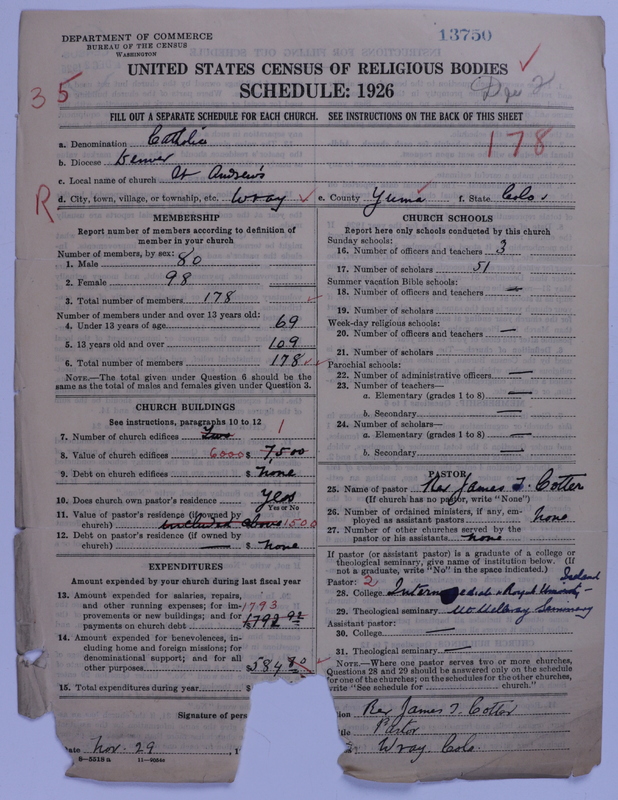 DEPARTMENT OF COMMERCE
BUREAU OF THE CENSUS
WASHINGTON
13750
UNITED STATES CENSUS OF RELIGIOUS BODIES
SCHEDULE: 1926
35
FILL OUT A SEPARATE SCHEDULE FOR EACH CHURCH. SEE INSTRUCTIONS ON THE BACK OF THIS SHEET
178
a. Denomination Catholic
b. Diocese Denver
c. Local name of church St Andrew's
R
d. City, town, village, or township, etc. Wray e. County Yuma f. State Colo.
MEMBERSHIP
Report number of members according to definition of
member in your church
Number of members, by sex:
1. Male 80
2. Female 98
3. Total number of members 178
Number of members under and over 13 years old:
4. Under 13 years of age 69
5. 13 years old and over 109
6. Total number of members 178
NOTE.—The total given under Question 6 should be the
same as the total of males and females given under Question 3.
CHURCH BUILDINGS
See instructions, paragraphs 10 to 12
7. Number of church edifices Two 1
8. Value of church edifices 6000 $ 7500
9. Debt on church edifices $ None
10. Does church own pastor's residence Yes
Yes or No
11. Value of pastor's residence (if owned by
church) included above 1500
12. Debt on pastor's residence (if owned by
church) — $ None
EXPENDITURES
Amount expended by your church during last fiscal year
13. Amount expended for salaries, repairs,
and other running expenses; for im-
provements or new buildings; and for
payments on church debt
1793
$1792 92
14. Amount expended for benevolences, in-
cluding home and foreign missions; for
denominational support; and for all
other purposes $584
15. Total expenditures during year $
Signature of pers
Date Nov. 29, 1
8—5518 a 11—9064
CHURCH SCHOOLS
Report here only schools conducted by this church
Sunday schools:
16. Number of officers and teachers 3
17. Number of scholars 51
Summer vacation Bible schools:
18. Number of officers and teachers —
19. Number of scholars
Week-day religious schools:
20. Number of officers and teachers —
21. Number of scholars
Parochial schools:
22. Number of administrative officers —
23. Number of teachers—
a. Elementary (grades 1 to 8) —
b. Secondary —
24. Number of scholars—
a. Elementary (grades 1 to 8) —
b. Secondary —
PASTOR
25. Name of pastor Rev James T. Cotter
(If church has no pastor, write "None")
26. Number of ordained ministers, if any, em-
ployed as assistant pastors None
27. Number of other churches served by the
pastor or his assistants None
If pastor (or assistant pastor) is a graduate of a college or
theological seminary, give name of institution below. (If
not a graduate, write "No" in the space indicated.)
Pastor: 2 Ireland
28. College Intermediate & Royal University -
29. Theological seminary Seminary
Assistant pastor:
30. College —
31. Theological seminary —
NOTE.—Where one pastor serves two or more churches,
Questions 28 and 29 should be answered only on the schedule
for one of the churches; on the schedules for the other churches,
write "See schedule for church."
tion Rev James T. Cotter
tle Pastor
Wray Colo.